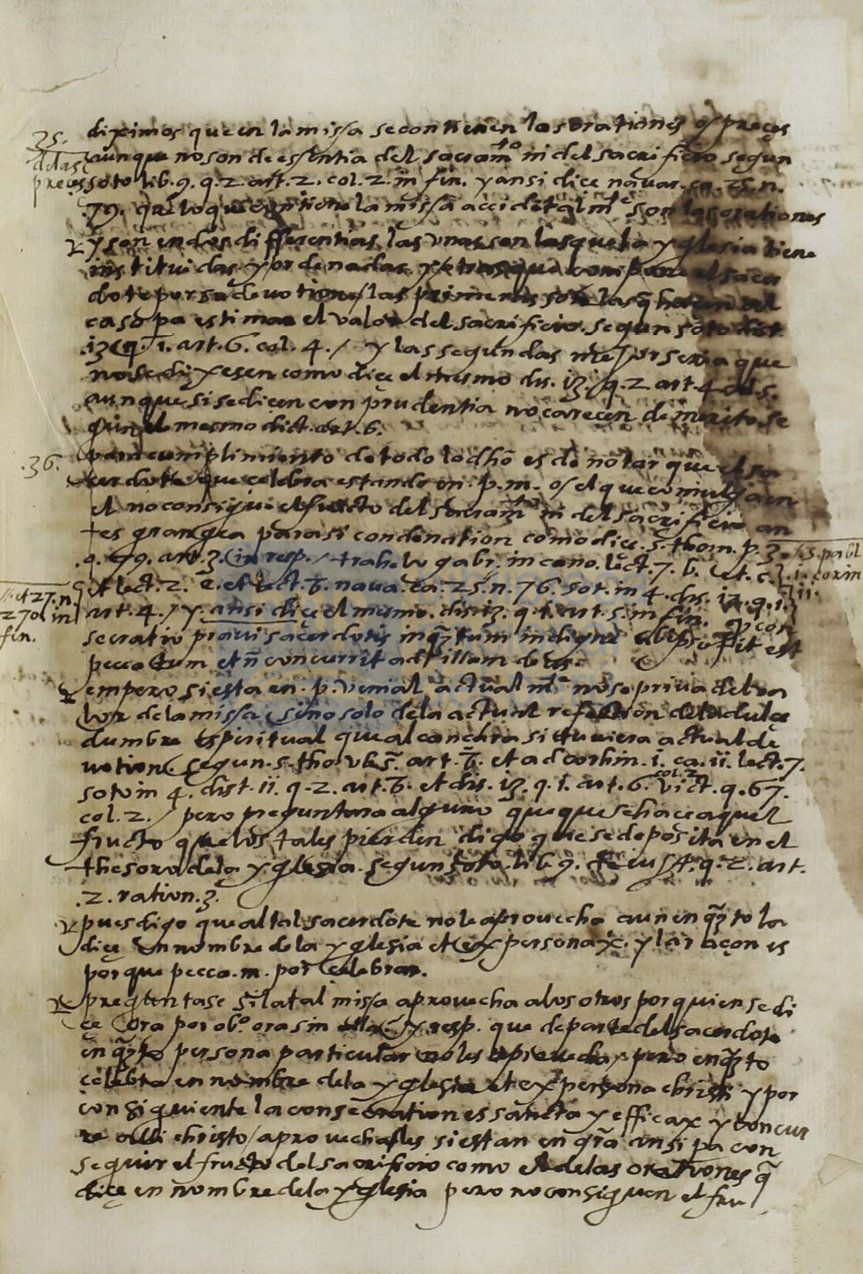 35.
de las
preces
diximos que en la missa se contienen las orationes o preçes
aunque no son de essentia del sacramto ni del sacrificio segun
soto lib. 9. q. 2. art. 2. col. 2. in fin. y ansi dice nauar. n.
79. que lo que contiene la missa accidētalmte son las orationes
y son en dos differentias, las vnas son las que la yglesia tiene
instituidas y ordenadas y otras que compone el sacer
dote por su deuotion las primeras son las q̃ hacen al
caso pa estimar el valor del sacrificio. segun soto dist.
13. q. 1. art. 6. col. 4. / y las segundas mejor seria que
no se dixesen como diçe el mesmo dis. 13. q. 2 art. 4
aunque si se diçen con prudentia no careçen de merito. se
gun el mesmo dict. art. 6.
.36.
para cumplimiento de todo lo dho es de notar que el sa
cerdote que celebra estando en p. m. o el que comulga en
el no consigue el fructo del sacramto ni del sacrificio an
tes grangea para si condenation como diçe s. thom. p. 3.
q. 79. art. 3. in resp. / trahelo gabr. in cano. lect. 7. b. et. c.
et lect. 2. e. et lect. naua. ca. 25. n. 76. sot. in 4. dis. 12. q. 1.
art. 4. / y ansi diçe el mesmo. dis. 13. q. 1. art. 5. in fin. q̃ con
secratio praui sacerdotis in q̃tum indigni est
peccatum et ñ concurrit ad illam deus.
et 27. n.
270. in
fin.
empero si esta en. p. venial actualmte no se priua del va
lor de la missa, sino solo de la actual refection de la dulçe
dumbre espiritual que alcançara si tuviera actual de
uotion segun. s. tho. vbi s̃. art. et ad corhin. 1. ca. ii. lect. 7.
soto in 4. dist. 11. q. 2. art. et dis. 13. q. 1. art. 6. col. 2. vict. q. 67.
col. 2. / pero preguntara alguno que que se haçe aquel
fructo que los tales pierden digo que se deposita en el
thesoro de la yglesia. segun soto lib. 9. q. 2. art.
.2. ration. 3.
pues digo que al tal sacerdote no le aprouecha aun en q̃to la
diçe en nombre de la yglesia et ex persona X. y la raçon es
porque pecca. m. por celebrar.
preguntase si la tal missa aprouecha a los otros por quien se di
çe ora por obo. ora sin y resp. que de parte del sacerdote
en q̃to persona particular no les aprouecha, pero en q̃to
celebra en nombre de la yglesia et ex persona christi y por
consiguiente la consecration es sancta y efficax y concur
re alli christo / aprouechales si estan en grã ansi pa con
seguir el fructo del sacrificio como el de las orationes q̃
diçe en nombre de la yglesia pero no consiguen el fru